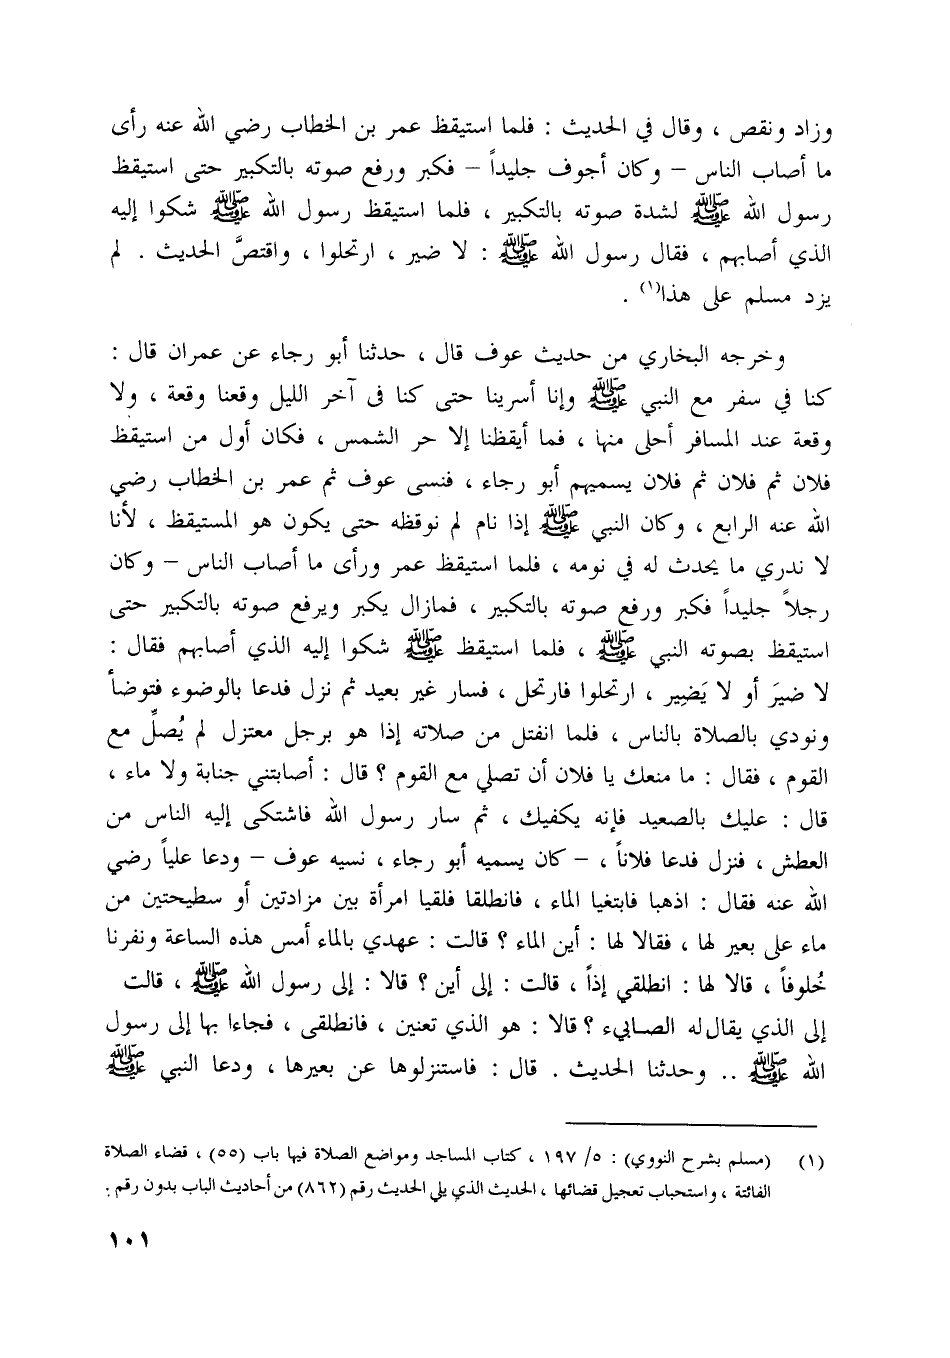 وزاد ونقص ، وقال في الحديث : فلما استيقظ عمر بن الخطاب رضي الله عنه رأى
ما أصاب الناس – وكان أجوف جليداً – فكبر ورفع صوته بالتكبير حتى استيقظ
رسول الله ﷺ لشدة صوته بالتكبير ، فلما استيقظ رسول الله ﷺ شكوا إليه
الذي أصابهم ، فقال رسول الله ﷺ : لا ضير ، ارتحلوا ، واقتصَّ الحديث . لم
يزد مسلم على هذا(١) .
وخرجه البخاري من حديث عوف قال ، حدثنا أبو رجاء عن عمران قال :
كنا في سفر مع النبي ﷺ وإنا أسرينا حتى كنا فى آخر الليل وقعنا وقعة ، ولا
وقعة عند المسافر أحلى منها ، فما أيقظنا إلا حر الشمس ، فكان أول من استيقظ
فلان ثم فلان ثم فلان يسميهم أبو رجاء ، فنسى عوف ثم عمر بن الخطاب رضي
الله عنه الرابع ، وكان النبي ﷺ إذا نام لم نوقظه حتى يكون هو المستيقظ ، لأنا
لا ندري ما يحدث له في نومه ، فلما استيقظ عمر ورأى ما أصاب الناس – وكان
رجلاً جليداً فكبر ورفع صوته بالتكبير ، فمازال يكبر ويرفع صوته بالتكبير حتى
استيقظ بصوته النبي ﷺ ، فلما استيقظ ﷺ شكوا إليه الذي أصابهم فقال :
لا ضيَر أو لا يَضِير ، ارتحلوا فارتحل ، فسار غير بعيد ثم نزل فدعا بالوضوء فتوضأ
ونودي بالصلاة بالناس ، فلما انفتل من صلاته إذا هو برجل معتزل لم يُصلِّ مع
القوم ، فقال : ما منعك يا فلان أن تصلي مع القوم ؟ قال : أصابتني جنابة ولا ماء ،
قال : عليك بالصعيد فإنه يكفيك ، ثم سار رسول الله فاشتكى إليه الناس من
العطش ، فنزل فدعا فلاناً ، – كان يسميه أبو رجاء ، نسيه عوف – ودعا علياً رضي
الله عنه فقال : اذهبا فابتغيا الماء ، فانطلقا فلقيا امرأة بين مزادتين أو سطيحتين من
ماء على بعير لها ، فقالا لها : أين الماء ؟ قالت : عهدي بالماء أمس هذه الساعة ونفرنا
خُلوفاً ، قالا لها : انطلقي إذاً ، قالت : إلى أين ؟ قالا : إلى رسول الله ﷺ ، قالت
إلى الذي يقال له الصابيء ؟ قالا : هو الذي تعنين ، فانطلقى ، فجاءا بها إلى رسول
الله ﷺ .. وحدثنا الحديث . قال : فاستنزلوها عن بعيرها ، ودعا النبي ﷺ
(١) (مسلم بشرح النووي) : ٥/ ١٩٧ ، كتاب المساجد ومواضع الصلاة فيها باب (٥٥) ، قضاء الصلاة
الفائتة ، واستحباب تعجيل قضائها ، الحديث الذي يلي الحديث رقم (٨٦٢) من أحاديث الباب بدون رقم .
١٠١